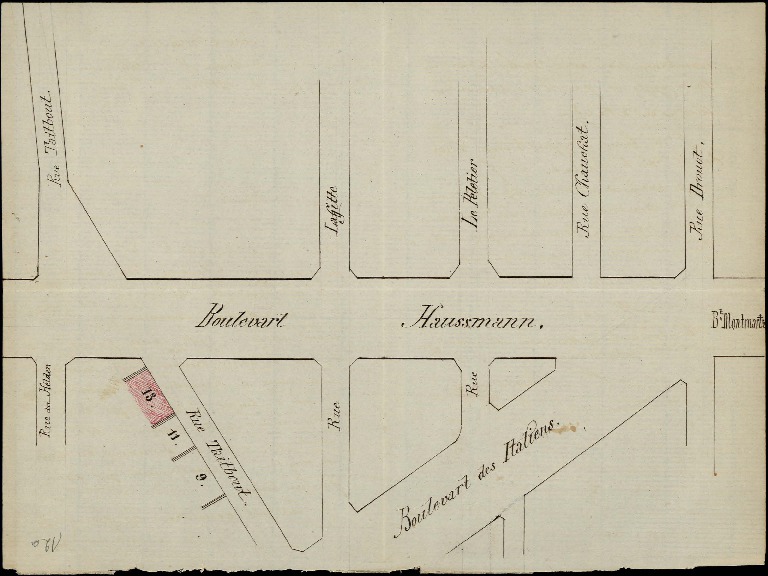 Rue Thiltbout.
Lafitte
Le Peletier
Rue Chauchat.
Rue Drouot.
Boulevart Haussmann.
Bt Montmartre
Rue du Helder
13.
11.
9.
Rue Thiltbout.
Rue
Rue
Boulevart des Italiens.